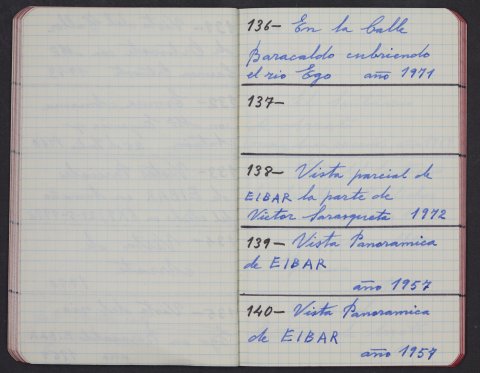 136- En la Calle
Baracaldo cubriendo
el rio Ego año 1971
137-
138- Vista parcial de
EIBAR la parte de
Victor Sarasqueta 1972
139- Vista Panoramica
de EIBAR
año 1957
140- Vista Panoramica
de EIBAR
año 1957